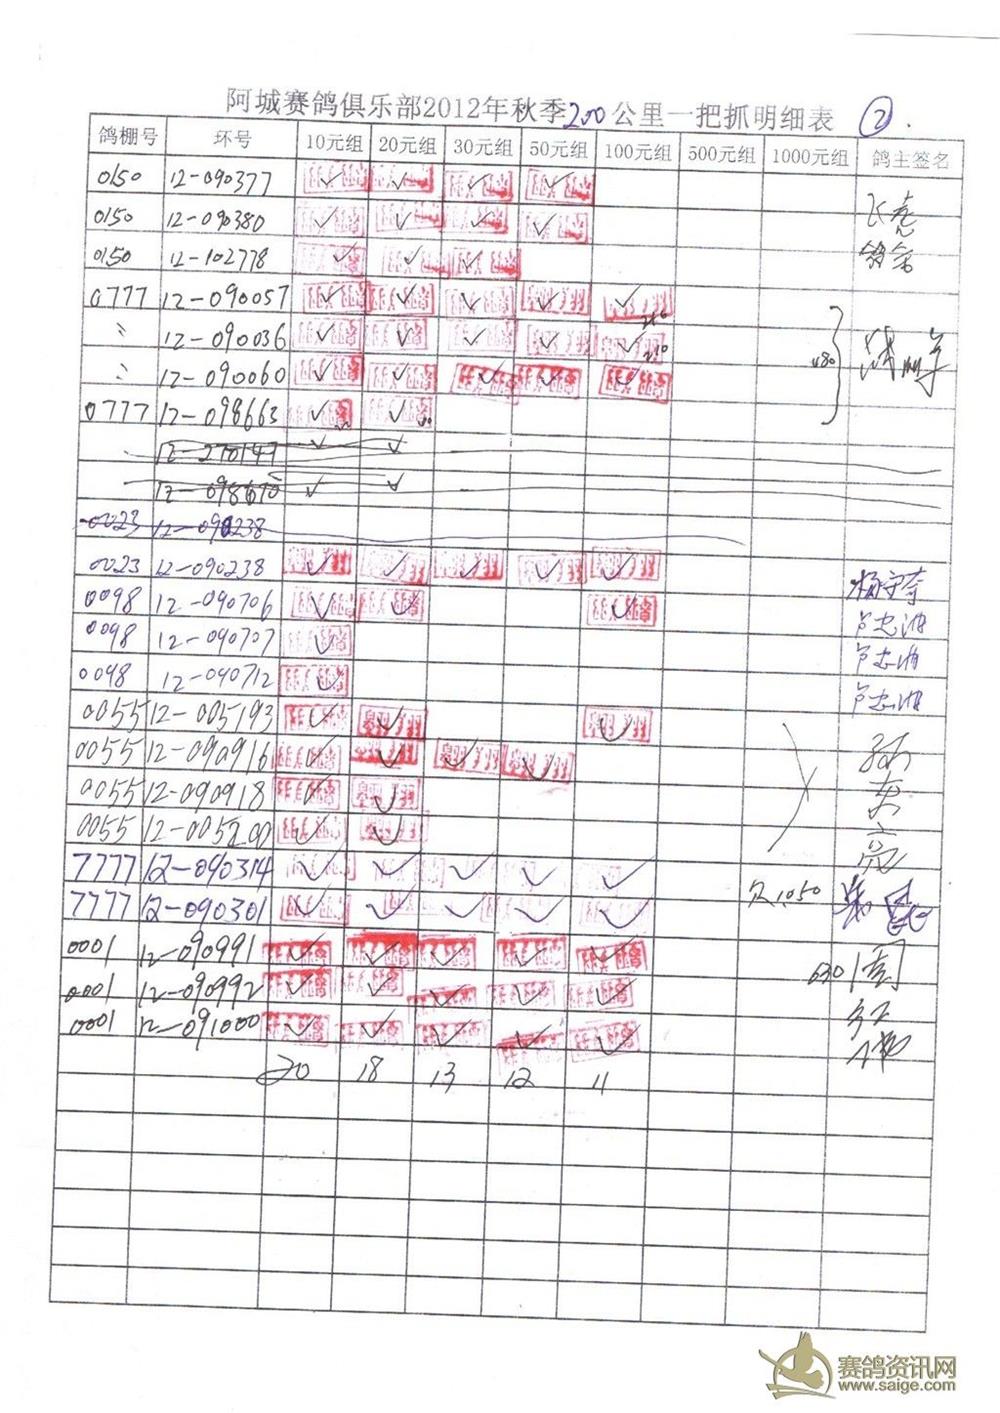 阿城赛鸽俱乐部2012年秋季200公里一把抓明细表 ②.
鸽棚号 环号 10元组 20元组 30元组 50元组 100元组 500元组 1000元组 鸽主签名
0150 12-090377 ✓ ✓ ✓ ✓
0150 12-090380 ✓ ✓ ✓ ✓
0150 12-102778 ✓ ✓ ✓
0777 12-090057 ✓ ✓ ✓ ✓ ✓ 210
〃 12-090036 ✓ ✓ ✓ ✓ ✓ 210 480
〃 12-090060 ✓ ✓ ✓ ✓ ✓
0777 12-098663 ✓ ✓
12-270147 ✓ ✓
12-098670 ✓ ✓
0023 12-090238
0023 12-090238 ✓ ✓ ✓ ✓ ✓
0098 12-090706 ✓ ✓ ✓
0098 12-090707 ✓
0098 12-090712 ✓
0055 12-005193 ✓ ✓ ✓
0055 12-090916 ✓ ✓ ✓ ✓
0055 12-090918 ✓ ✓
0055 12-005200 ✓ ✓
7777 12-090314 ✓ ✓ ✓ ✓ ✓
7777 12-090301 ✓ ✓ ✓ ✓ ✓ 欠1050
0001 12-090991 ✓ ✓ ✓ ✓ ✓ 630
0001 12-090992 ✓ ✓ ✓ ✓ ✓
0001 12-091000 ✓ ✓ ✓ ✓ ✓
20 18 13 12 11
赛鸽资讯网
www.saige.com